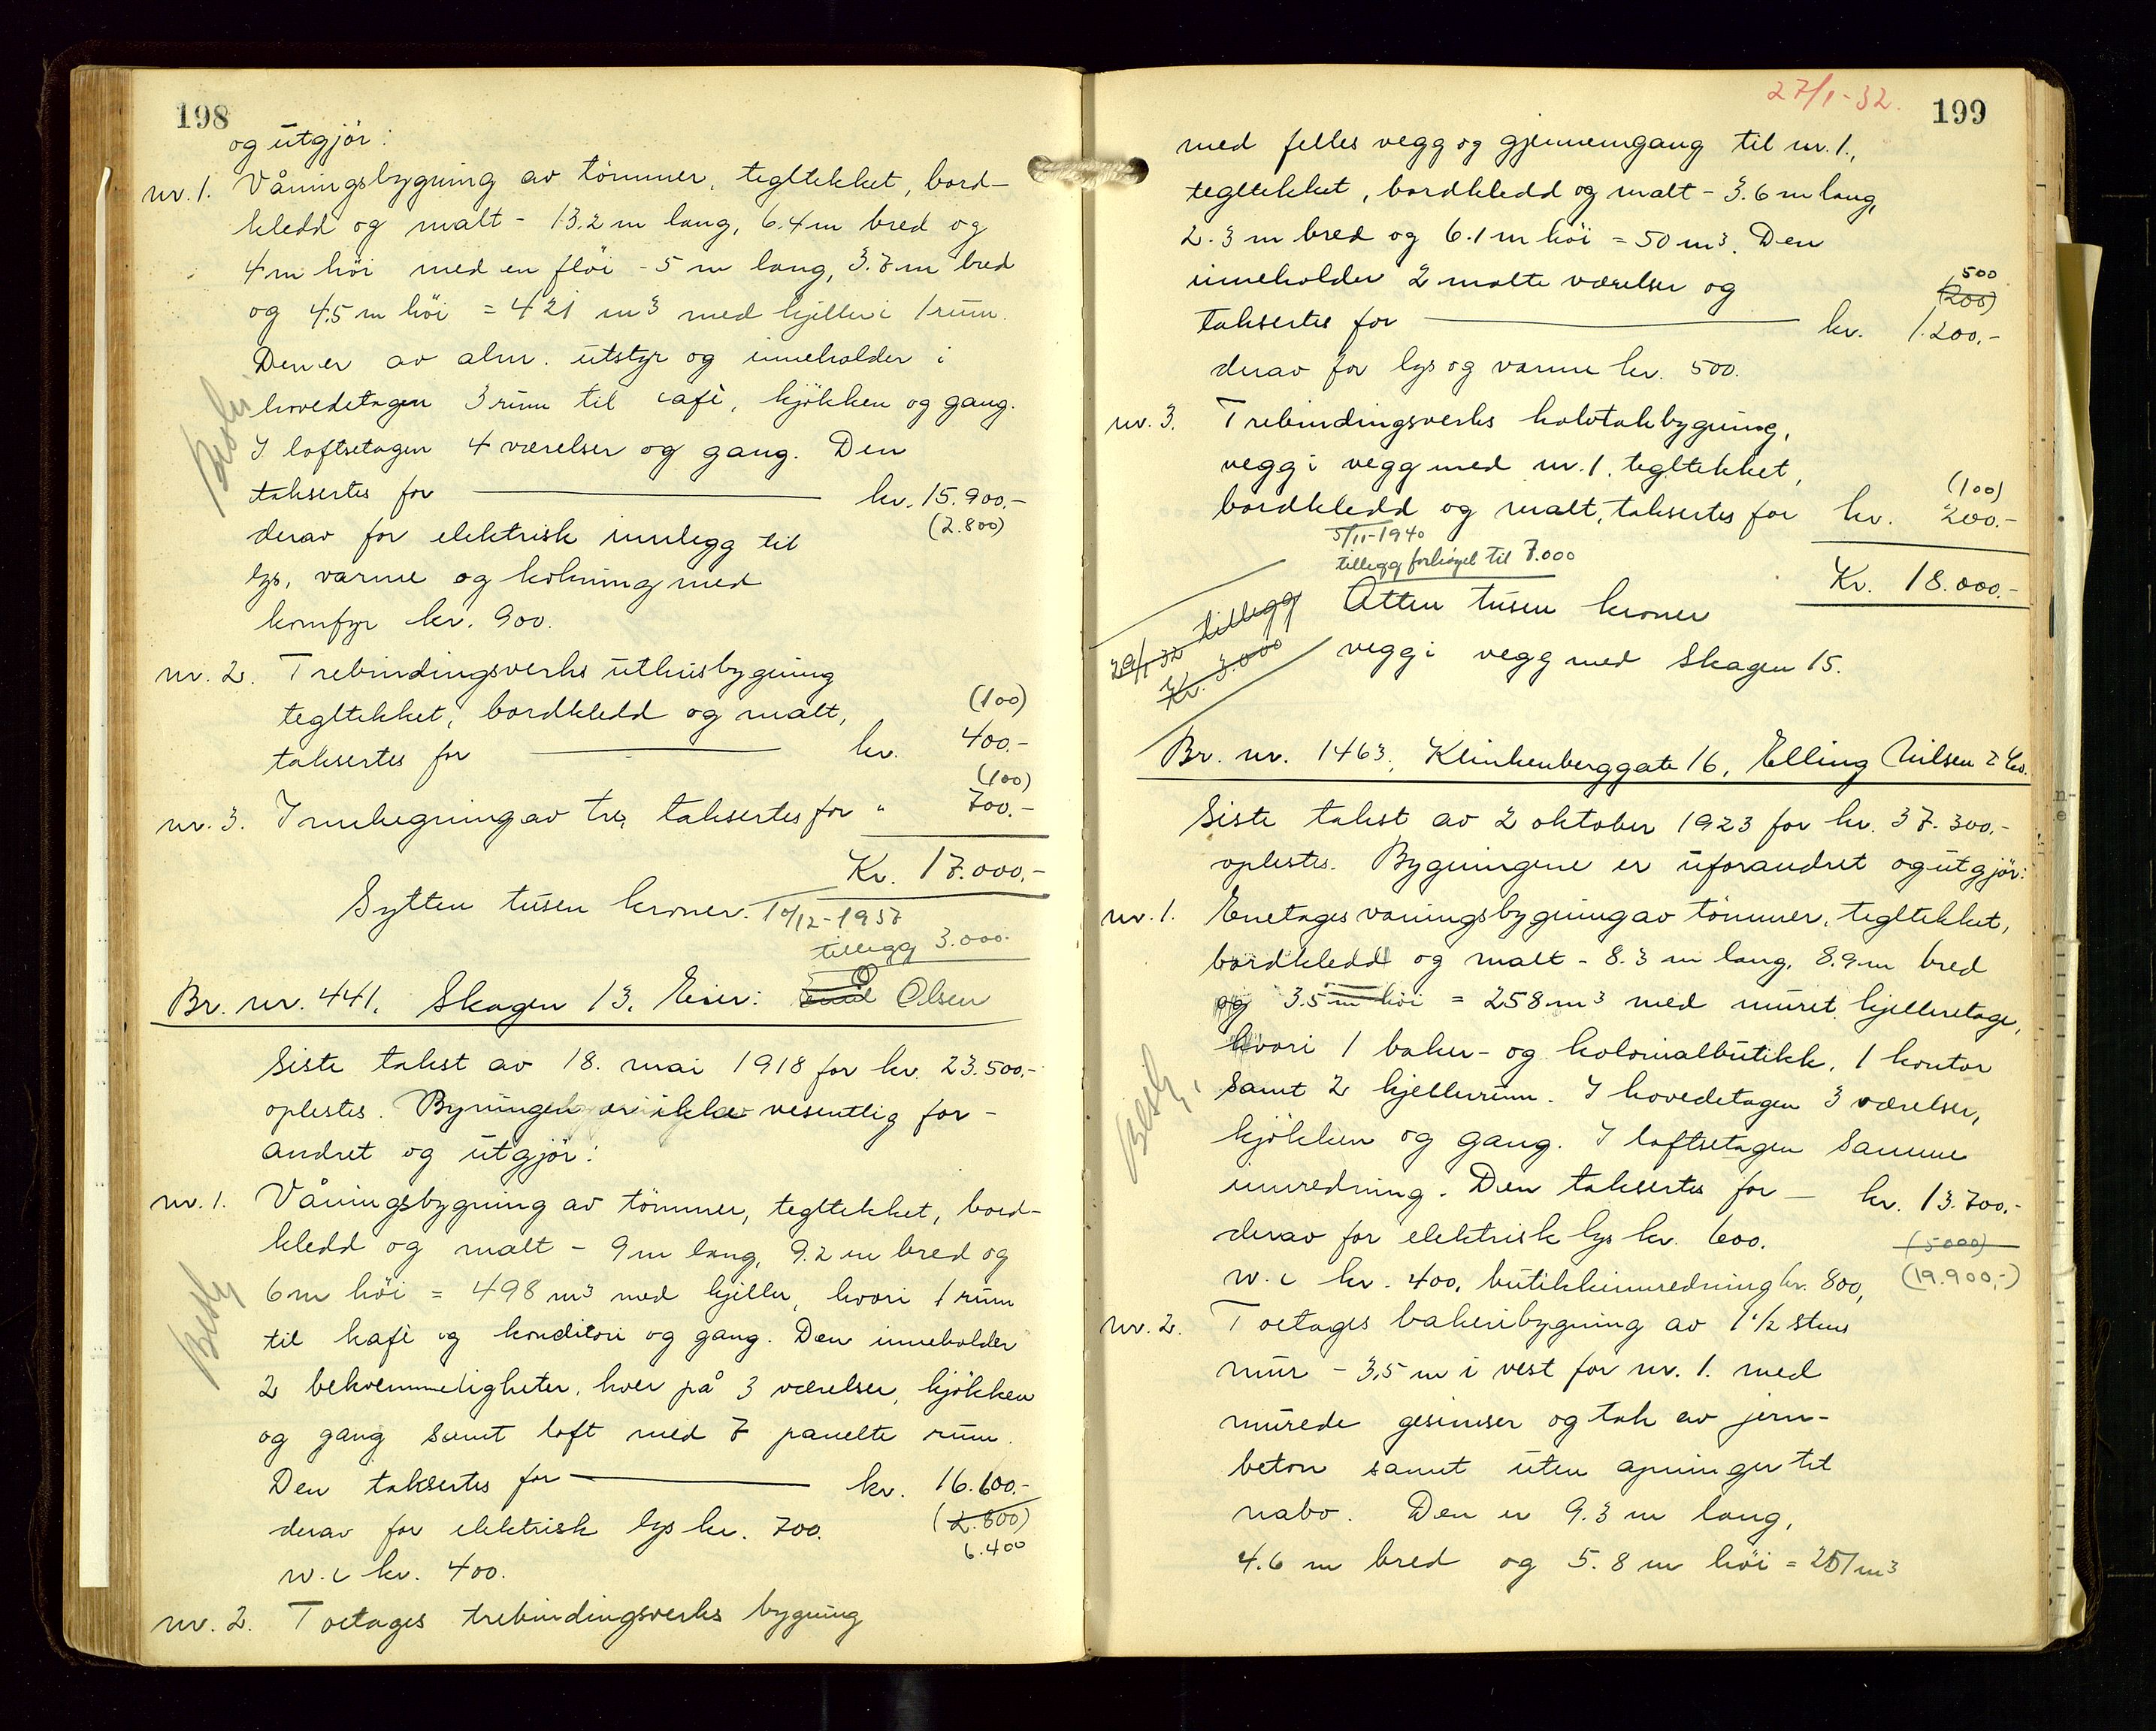 198
og utgjör:
nr. 1. Våningsbygning av tömmer, tegltekket, bord-
kledd og malt - 13.2 m lang, 6.4 m bred og
4 m höi med en flöi - 5 m lang, 3.7 m bred
og 4.5 m höi = 421 m3 med kjeller i 1 rum.
Den er av alm. utstyr og inneholder i
hovedetagen 3 rum til café, kjökken og gang.
I loftsetagen 4 værelser og gang. Den
taksertes for kr. 15.900.-
(2.800)
derav for elektrisk innlegg til
lys, varme og kokning med
komfyr kr. 900.
nr. 2. Trebindingsverks uthusbygning
(100)
tegltekket, bordkledd og malt,
taksertes for kr. 400.-
(100)
nr. 3. Innhegning av tre, taksertes for " 700.-
Kr. 17.000.-
Sytten tusen kroner.
10/12-1937
tillegg 3.000.
Br. nr. 441. Skagen 13. Eier: O Olsen
Siste takst av 18. mai 1918 for kr. 23.500.-
oplestes. Bygningen er ikke vesentlig for-
andret og utgjör:
nr. 1. Våningsbygning av tömmer, tegltekket, bord-
kledd og malt - 9 m lang, 9.2 m bred og
6 m höi = 498 m3 med kjeller, hvori 1 rum
til kafé og konditori og gang. Den inneholder
2 bekvemmeligheter, hver på 3 værelser, kjökken
og gang samt loft med 7 panelte rum.
Den taksertes for kr. 16.600.-
derav for elektrisk lys kr. 700. (2.800)
6.400
w.c kr. 400.
nr. 2. Toetages trebindingsverks bygning
27/1-32.
199
med felles vegg og gjennemgang til nr. 1.,
tegltekket, bordkledd og malt - 3.6 m lang,
2.3 m bred og 6.1 m höi = 50 m3. Den
500
inneholder 2 malte værelser og (200)
taksertes for kr. 1.200.-
derav for lys og varme kr. 500.
nr. 3. Trebindingsverks halvtakbygning,
vegg i vegg med nr. 1. tegltekket,
(100)
bordkledd og malt, taksertes for kr. 200.-
5/11-1940
tillegg forhöyet til 7.000
Kr. 18.000.-
Atten tusen kroner
29/1 32 tillegg
Kr. 3.000
vegg i vegg med Skagen 15.
Br. nr. 1463, Klinkenberggate 16, Elling Nilsen & Co.
Siste takst av 2 oktober 1923 for kr. 37.300.-
oplestes. Bygningene er uforandret og utgjör:
nr. 1. Enetages våningsbygning av tömmer, tegltekket,
bordkledd og malt - 8.3 m lang, 8.9 m bred
og 3.5 m höi = 258 m3 med muret kjelleretage,
hvori 1 baker- og kolonialbutikk, 1 kontor
samt 2 kjellerrum. I hovedetagen 3 værelser,
kjökken og gang. I loftsetagen samme
innredning. Den taksertes for - kr. 13.700.-
derav for elektrisk lys kr. 600. (5000)
w.c kr. 400, butikkinnredning kr. 800, (19.900,-)
nr. 2. Toetages bakeribygning av 1 1/2 stens
mur - 3,5 m i vest for nr. 1. med
murede gesimser og tak av jern-
beton samt uten åpninger til
nabo. Den er 9.3 m lang,
4.6 m bred og 5.8 m höi = 251 m3